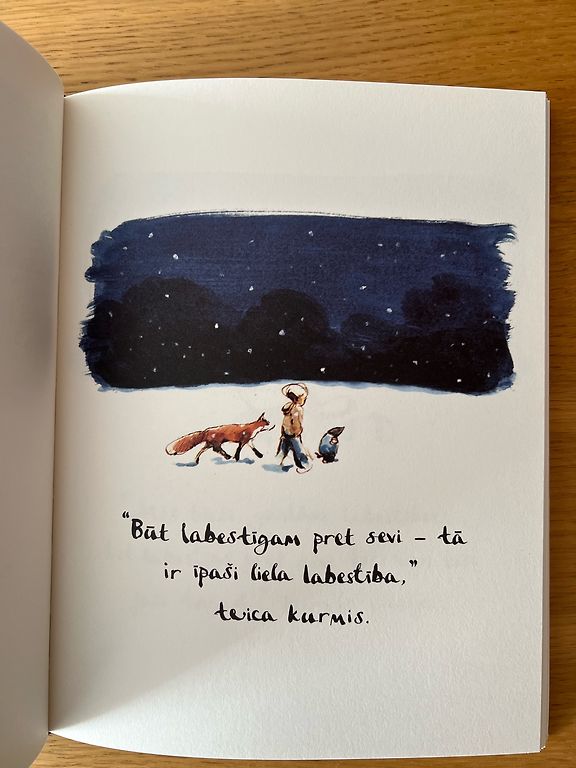 “Būt labestīgam pret sevi – tā
ir īpaši liela labestība,”
teica kurmis.